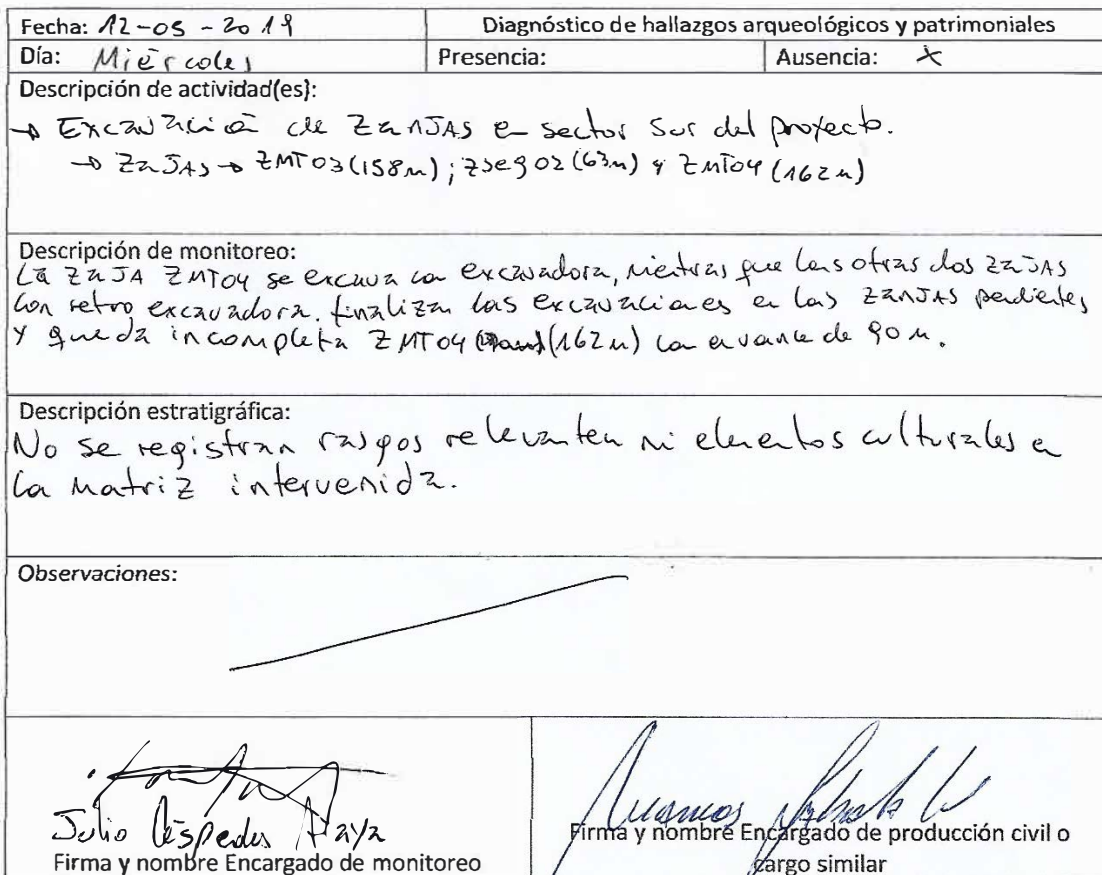 Fecha: 12-05-2019
Diagnóstico de hallazgos arqueológicos y patrimoniales
Día: Miércoles
Presencia:
Ausencia: X
Descripción de actividad(es):
→ Excavación de zanjas en sector sur del proyecto.
→ Zajas → ZMT03 (158m); Zseg02 (63m) y ZMT04 (162m)
Descripción de monitoreo:
La zaja ZMT04 se excava con excavadora, mientras que las otras dos zajas
con retro excavadora. finalizan las excavaciones en las zanjas pendientes
y queda incompleta ZMT04 (162m) con avance de 90m.
Descripción estratigráfica:
No se registran rasgos relevantes ni elementos culturales en
la matriz intervenida.
Observaciones:
Julio Céspedes Araya
Firma y nombre Encargado de monitoreo
Firma y nombre Encargado de producción civil o
cargo similar